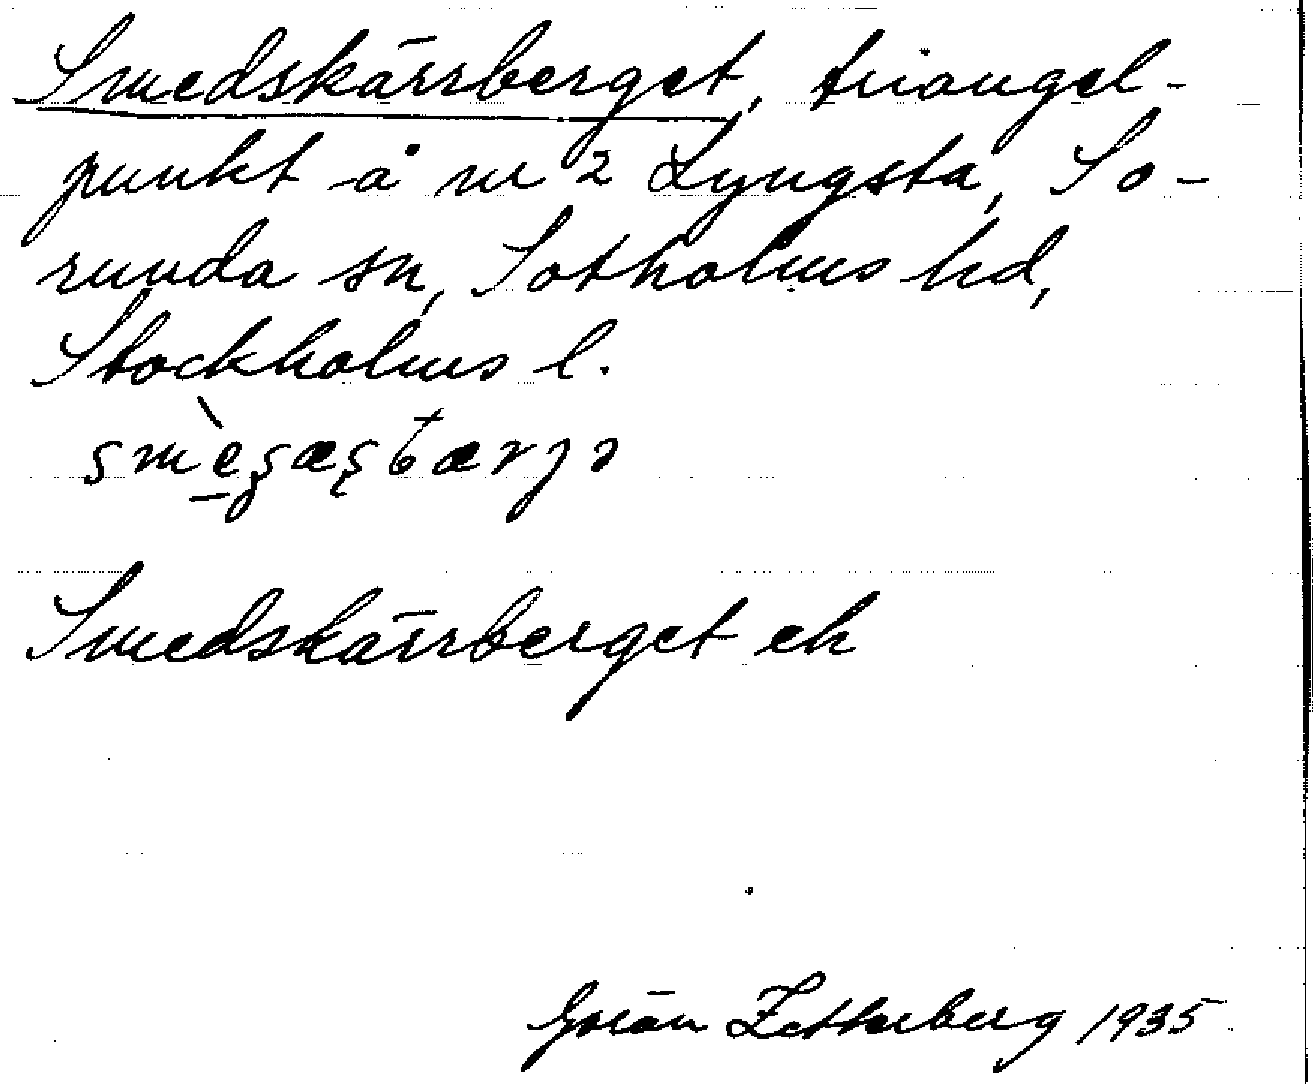 Smedskärrberget, triangel-
punkt å nr 2 Lyngsta, So-
runda sn, Sotholms hd,
Stockholms l.
Smedskärrberget ek
Göran Zetterberg 1935